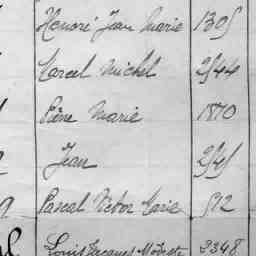 Honoré Jean Marie 1305
Marcel Michel 2544
Pierre Marie 1870
Jean 2545
Pascal Victor Marie 512
Louis Jacques Modeste 2348